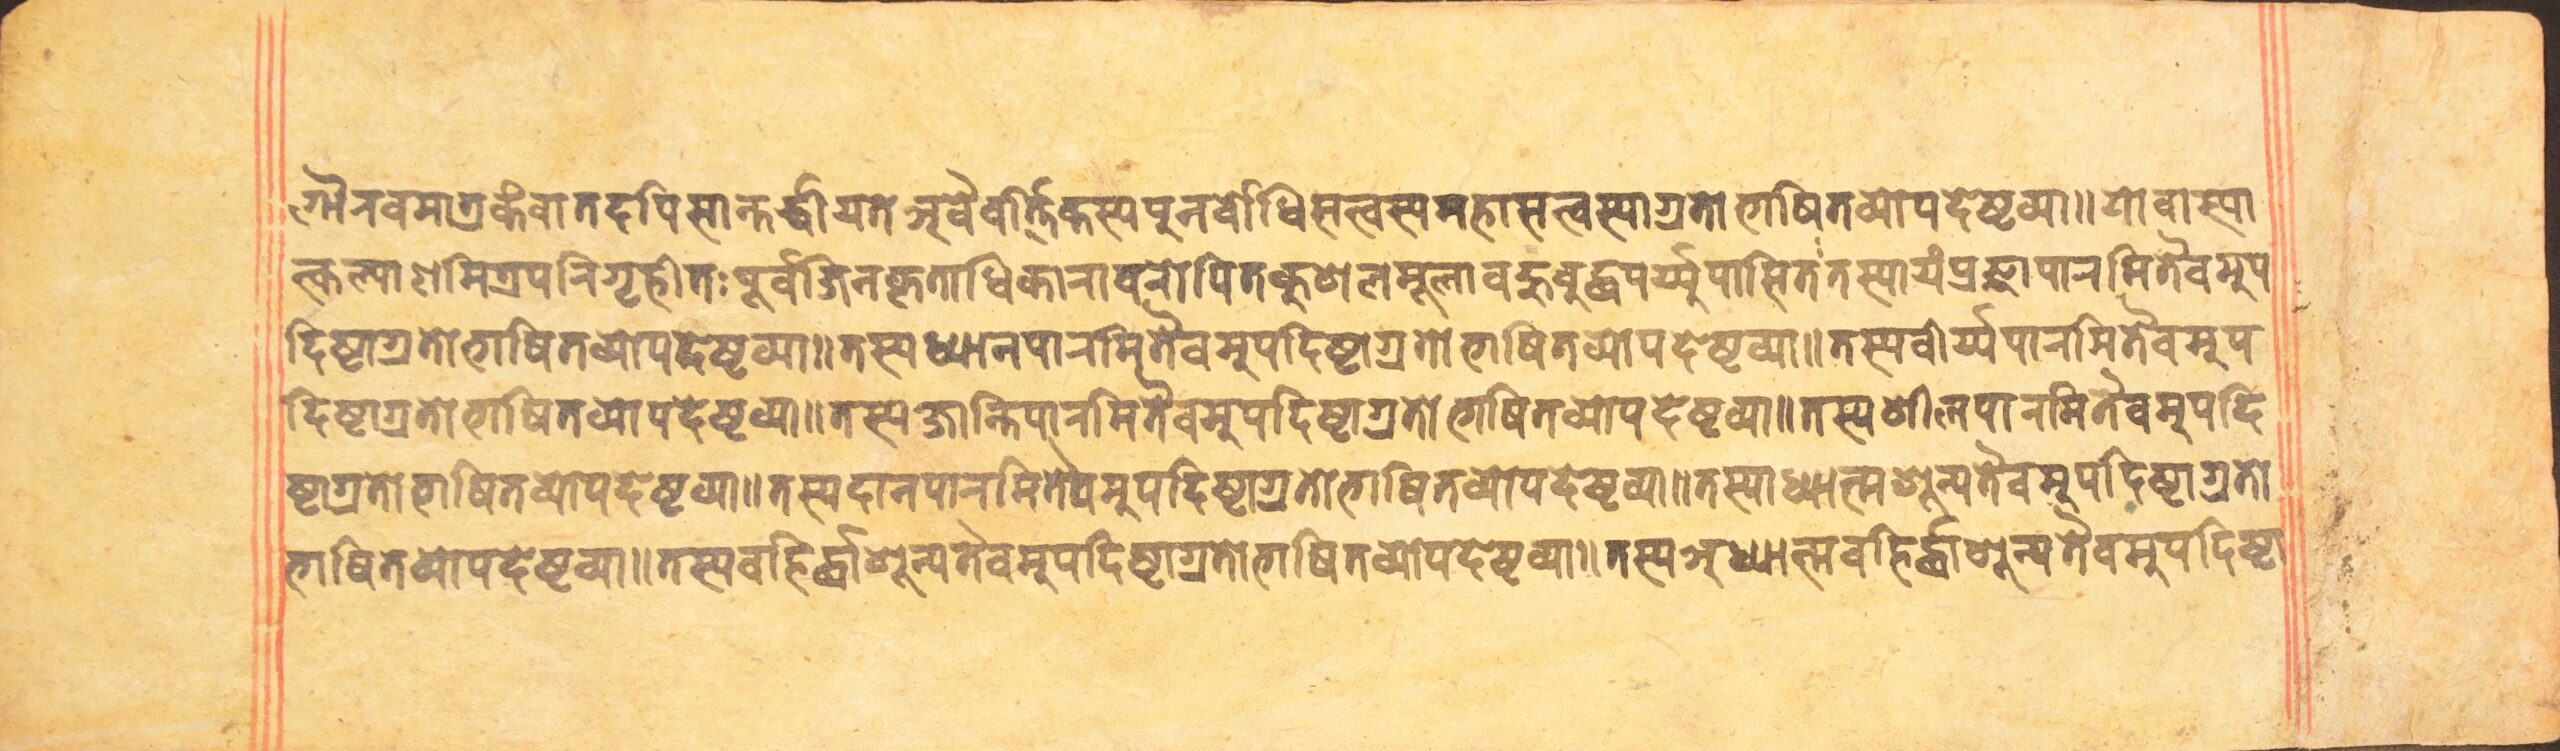 गौरवमात्रकंवातदपिसान्तर्द्धीयतेअवैवीर्त्तिकस्यपुनर्बोधिसत्त्वस्यमहासत्त्वस्याग्रतोभाषितव्योपदेष्टव्या॥योवास्या
त्कल्याणमित्रपरिगृहीतःपूर्वजिनकृताधिकारावरोपितकुशलमूलावहुबुद्धपर्य्युपासितःतस्यायंप्रज्ञापारमितैवमुप
दिष्टाग्रतोभाषितव्योपदेष्टव्या॥तस्यध्यानपारमितैवमुपदिष्टाग्रतोभाषितव्योपदेष्टव्या॥तस्यवीर्य्यपारमितैवमुप
दिष्टाग्रतोभाषितव्योपदेष्टव्या॥तस्यक्षान्तिपारमितैवमुपदिष्टाग्रतोभाषितव्योपदेष्टव्या॥तस्यशीलपारमितैवमुपदि
ष्टाग्रतोभाषितव्योपदेष्टव्या॥तस्यदानपारमितैवमुपदिष्टाग्रतोभाषितव्योपदेष्टव्या॥तस्याध्यात्मशून्यतैवमुपदिष्टाग्रतो
भाषितव्योपदेष्टव्या॥तस्यवहिर्द्धाशून्यतैवमुपदिष्टाग्रतोभाषितव्योपदेष्टव्या॥तस्यअध्यात्मवहिर्द्धाशून्यतैवमुपदिष्टा